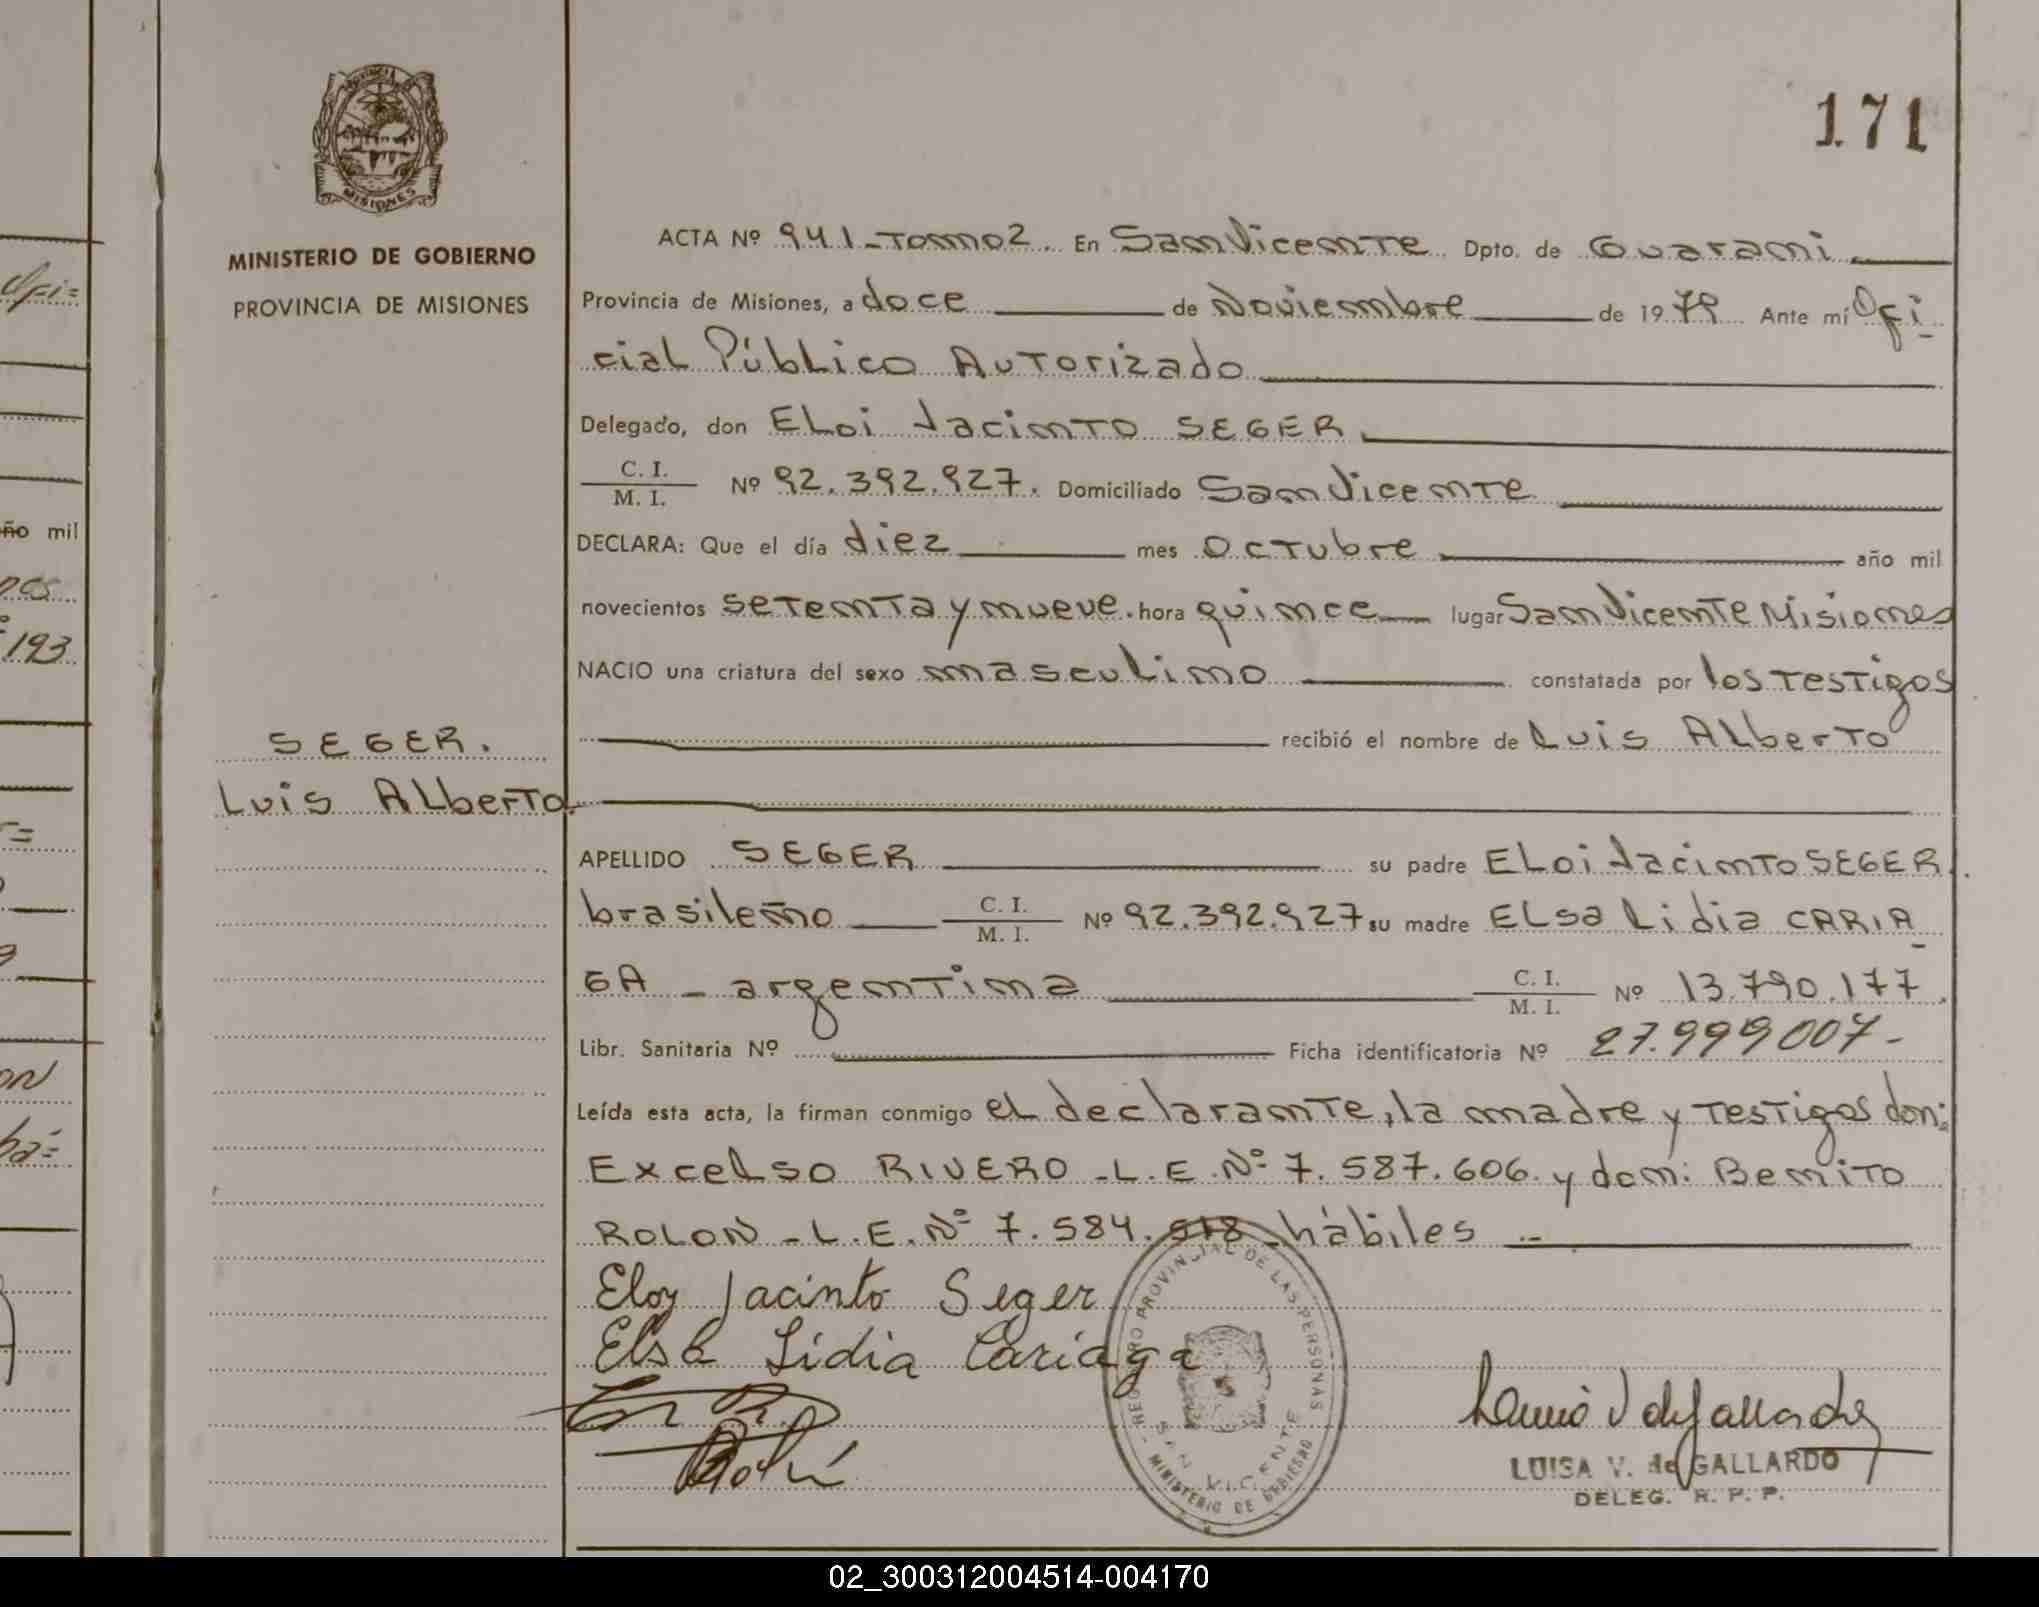 171
PROVINCIA
MISIONES
MINISTERIO DE GOBIERNO
PROVINCIA DE MISIONES
SEGER.
Luis Alberto.
ACTA Nº 941-Tomo 2. En San Vicente Dpto. de Guarani
Provincia de Misiones, a doce de Noviembre de 1979 Ante mí Ofi-
cial Público Autorizado
Delegado, don ELoi Jacinto SEGER.
C. I. / M. I. Nº 92.392.927. Domiciliado San Vicente
DECLARA: Que el día diez mes octubre año mil
novecientos setenta y nueve. hora quince lugar San Vicente Misiones
NACIO una criatura del sexo masculino constatada por los testigos
recibió el nombre de Luis Alberto
APELLIDO SEGER su padre ELoi Jacinto SEGER.
brasileño C. I. / M. I. Nº 92.392.927 su madre ELsa Lidia CARIA-
GA - argentina C. I. / M. I. Nº 13.790.177.
Libr. Sanitaria Nº Ficha identificatoria Nº 27.999007-
Leída esta acta, la firman conmigo el declarante, la madre y testigos don:
Excelso RIVERO - L.E. Nº 7.587.606. y don: Benito
ROLON - L.E. Nº 7.584.518 - hábiles
Eloy Jacinto Seger
Elsa Lidia Cariaga
REGISTRO PROVINCIAL DE LAS PERSONAS
SAN VICENTE
MINISTERIO DE GOBIERNO
LUISA V. de GALLARDO
DELEG. R. P. P.
año mil
193
02_300312004514-004170